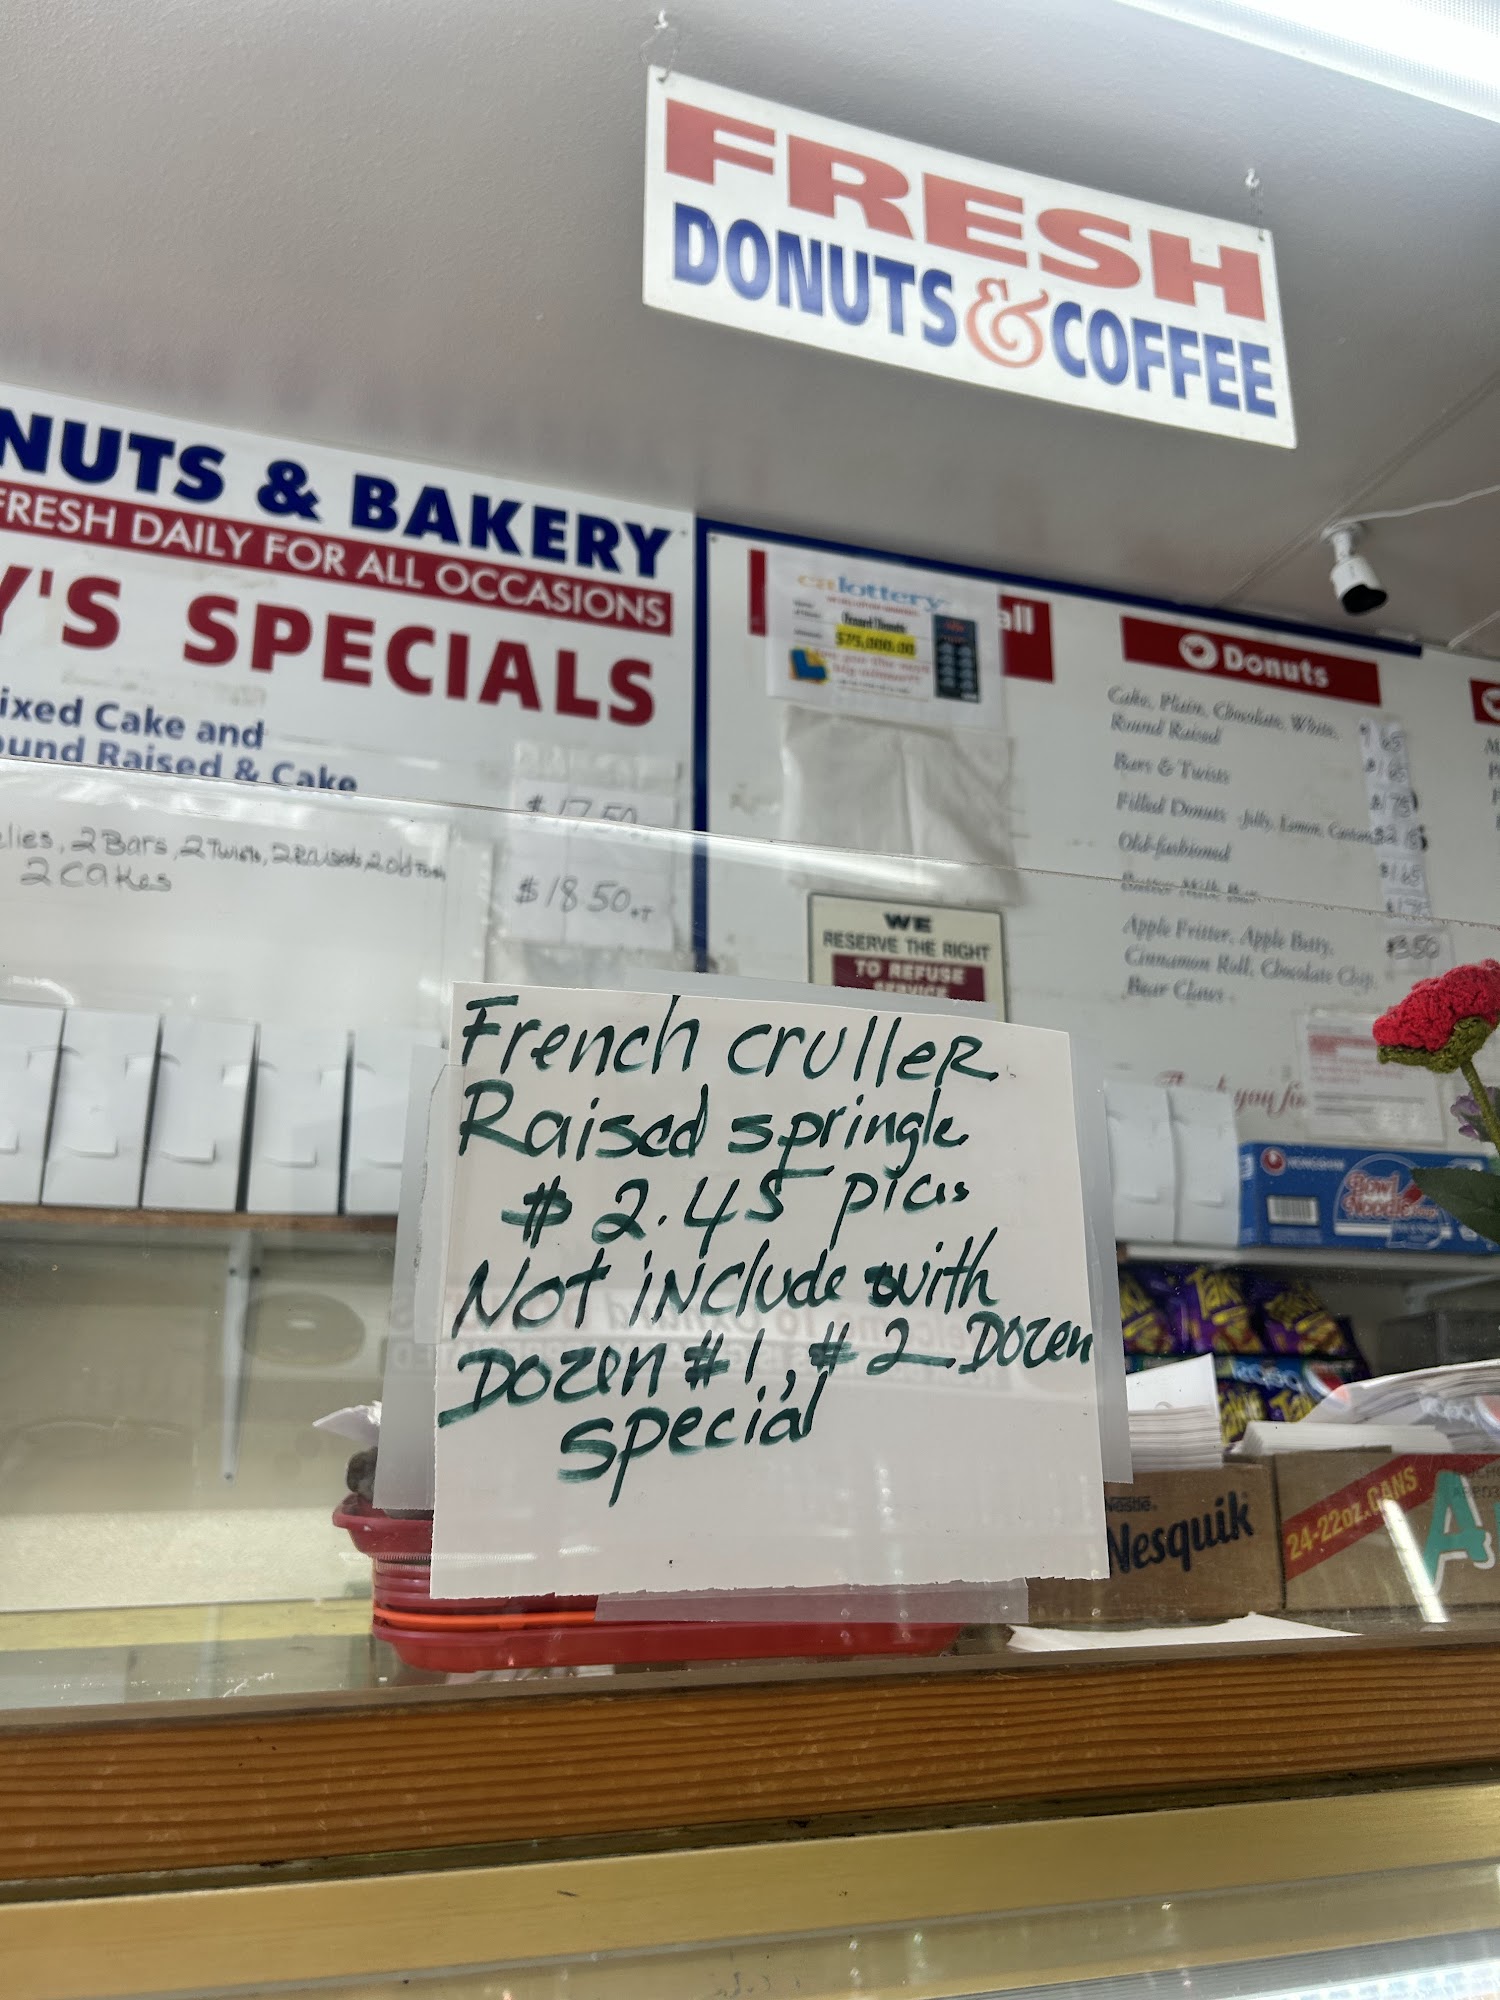 FRESH
DONUTS & COFFEE
NUTS & BAKERY
FRESH DAILY FOR ALL OCCASIONS
Y'S SPECIALS
ixed Cake and
ound Raised & Cake
$17.50
elies, 2 Bars, 2 Twists, 2 Raised, 2 old Fash
2 cakes
$18.50 +T
calottery
$75,000.00
all
WE
RESERVE THE RIGHT
TO REFUSE
SERVICE
Donuts
Cake, Plain, Chocolate, White,
Round Raised
Bars & Twists
Filled Donuts - Jelly, Lemon, Custard
Old-fashioned
$1.65
Butter Milk Bar
Apple Fritter, Apple Betty, $3.50
Cinnamon Roll, Chocolate Chip,
Bear Claws
Thank you for
French crulleR
Raised springle
$2.45 pius
Not include with
Dozen #1, #2 Dozen
special
NONGSHIM
Bowl
Noodle
Takis
Takis
pepsi
Nestle
Nesquik
24-22oz. CANS
A